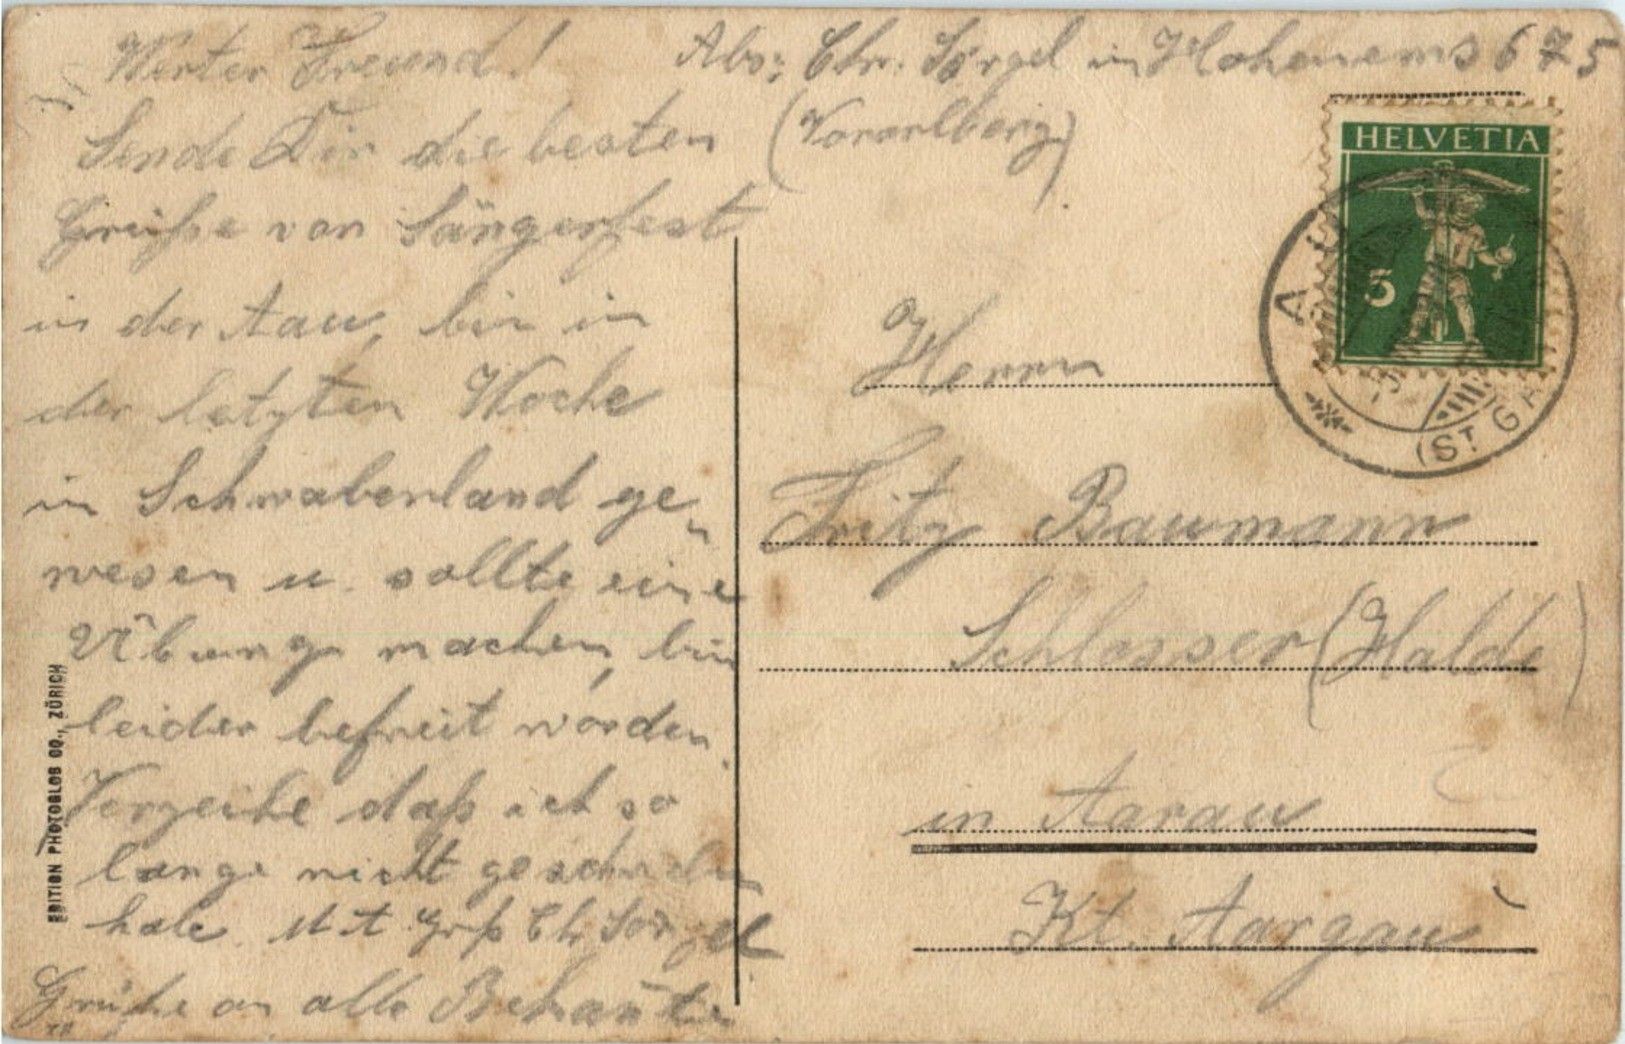 Werter Freund!
Sende Dir die besten
Grüße von Sängerfest
in der Aau, bin in
der letzten Woche
in Schwabenland ge-
wesen u. sollte eine
Übung machen, bin
leider befreit worden.
Verzeihe daß ich so
lange nicht geschrieben
habe. Mit Grß Chr Sörgel
Grüße an alle Bekannten
Abs: Chr. Sörgel in Hohenems 675
(Vorarlberg)
HELVETIA
5
AU
(ST. GA
Herrn
Fritz Baumann
Schlosser (Halde)
in Aarau
Kt. Aargau
EDITION PHOTOGLOB CO., ZÜRICH